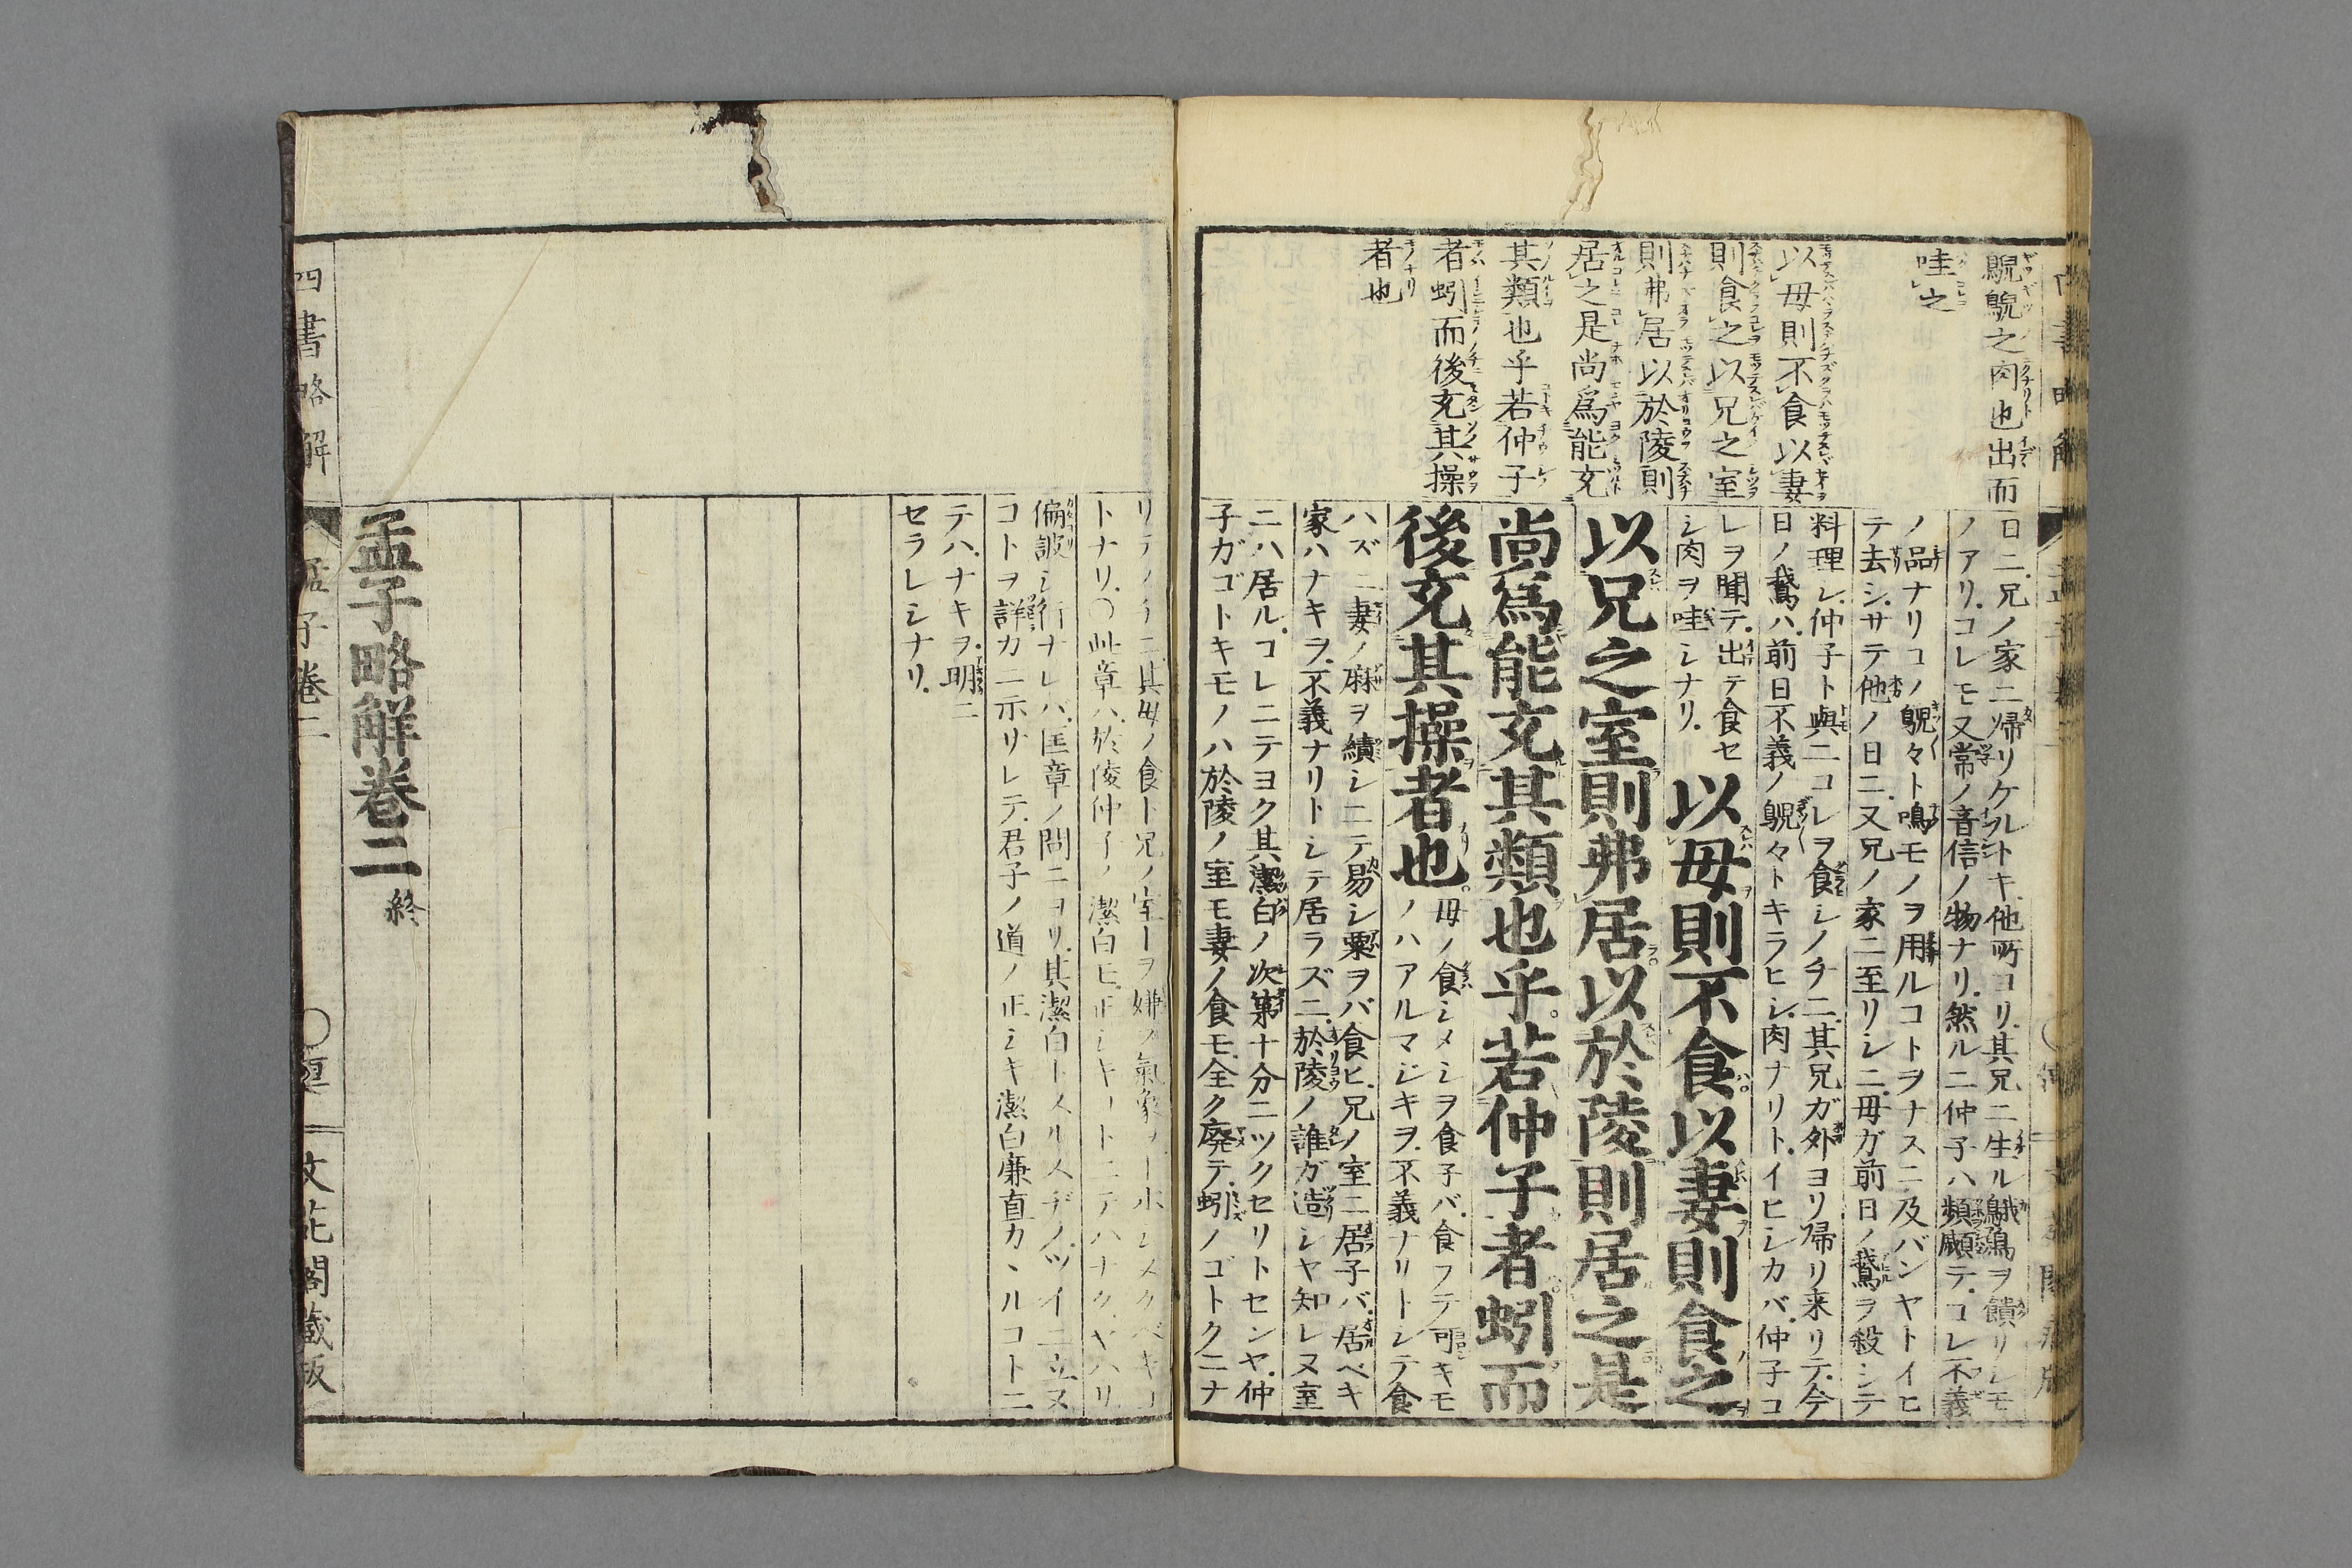 鶃鶃之肉也出而
哇之
以母則不食以妻
則食之以兄之室
則弗居以於陵則
居之是尚爲能充
其類也乎若仲子
者蚓而後充其操
者也
日ニ兄ノ家ニ帰リケルトキ他所ヨリ其兄ニ生ル鵝鳥ヲ饋リシモ
ノアリコレモ又常ノ音信ノ物ナリ然ルニ仲子ハ頻顣テコレ不義
ノ品ナリコノ鶃々ト鳴モノヲ用ルコトヲナスニ及バンヤトイヒ
テ去シサテ他ノ日ニ又兄ノ家ニ至リシニ母ガ前日ノ鵞ヲ殺シテ
料理シ仲子ト與ニコレヲ食シノチニ其兄ガ外ヨリ帰リ来リテ今
日ノ鵞ハ前日不義ノ鶃々トキラヒシ肉ナリトイヒシカバ仲子コ
レヲ聞テ出テ食セ
シ肉ヲ哇シナリ
以母則不食以妻則食之
以兄之室則弗居以於陵則居之是
尚爲能充其類也乎若仲子者蚓而
後充其操者也
母ノ食シメシヲ食子バ食フテ可キモ
ノハアルマジキヲ不義ナリトシテ食
ハズニ妻ノ麻ヲ績シニテ易シ粟ヲバ食ヒ兄ノ室ニ居子バ居ベキ
家ハナキヲ不義ナリトシテ居ラズニ於陵ノ誰ガ造シヤ知レヌ室
ニハ居ルコレニテヨク其潔白ノ次第十分ニツクセリトセンヤ仲
子ガゴトキモノハ於陵ノ室モ妻ノ食モ全ク廃テ蚓ノゴトクニナ
リテノチニ其母ノ食ト兄ノ室トヲ嫌フ氣象
トナリ〇此章ハ於陵仲子ノ潔白ヒ正シキ
偏詖シ行ナレハ匡章ノ問ニヨリ其潔白
コトヲ詳カニ示サレテ君子ノ道ノ正シキ潔白廉直カヽルコトニ
テハナキヲ明ニ
セラレシナリ
孟子略解卷二終
四書略解
孟子卷二
文花閣蔵版